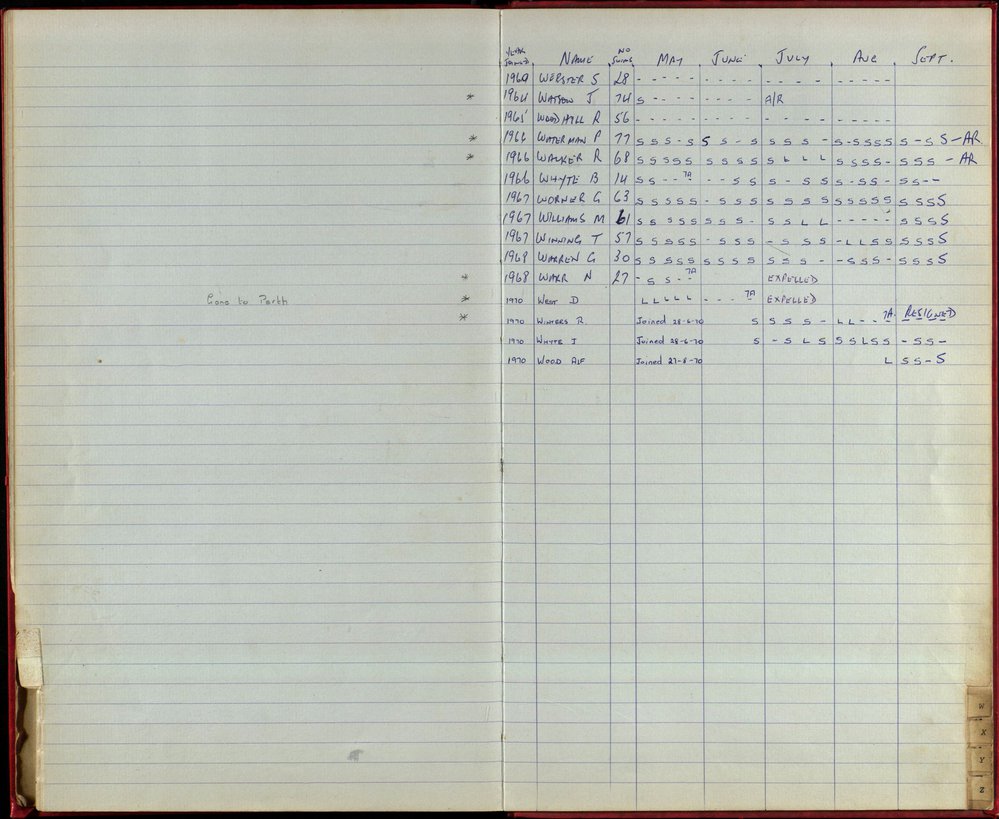 YEAR JOINED NAME NO SWIMS MAY JUNE JULY AUG SEPT.
1960 WEBSTER S 28 - - - - - - - - - - - - - - - - - -
* 1964 WATSON J 74 S - - - - - - - - A/R
1965 WOODHILL R 56 - - - - - - - - - - - - - - - - - -
* 1966 WATERMAN P 77 S S S - S S S - S S S S - S - S S S S - S S - AR
* 1966 WALKER R 68 S S S S S S S S S S L L L S S S S - S S S - AR
1966 WHYTE B 14 S S - - 7A - - S S S - S S S - S S - S S - -
1967 WORNER G 63 S S S S S - S S S S S S S S S S S S S S S S
1967 WILLIAMS M 61 S S S S S S S S - S S L L - - - - - S S S S
1967 WINNING T 57 S S S S S - S S S - S S S - L L S S S S S S
1969 WARREN G 30 S S S S S S S S S S S S - - S S S - S S S S
* 1968 WARR N 27 - S S - 7A EXPELLED
Gone to Perth * 1970 WEST D L L L L L - - - 7A EXPELLED
* 1970 WINTERS R. Joined 28-6-70 S S S S - L L - - 7A. RESIGNED
1970 WHYTE I Joined 28-6-70 S - S L S S S L S S - S S -
1970 WOOD ALF Joined 27-8-70 L S S - S
W
X
Y
Z